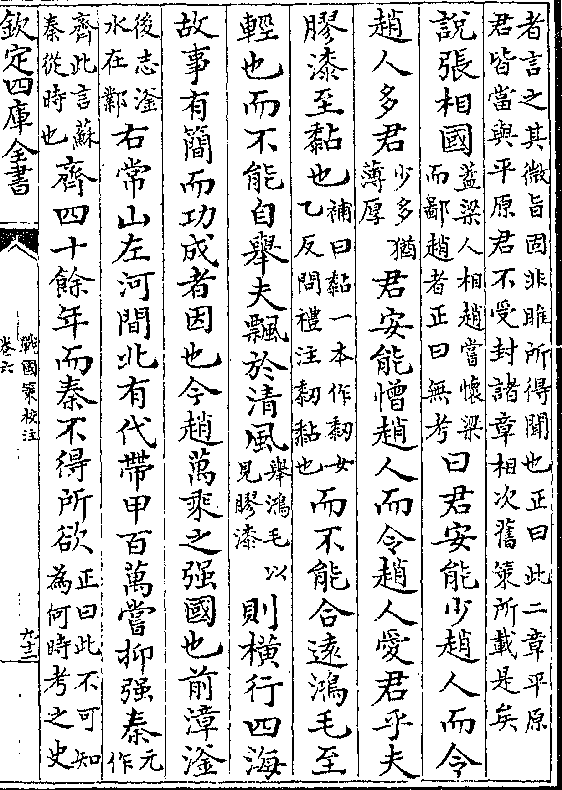 者言之其微旨固非雎所得聞也正曰此二章平原
君皆當與平原君不受封諸章相次舊策所載是矣
說張相國蓋梁人相趙當懷梁而鄙趙者正曰無考曰君安能少趙人而令
趙人多君少多猶薄厚君安能憎趙人而令趙人愛君乎夫
膠漆至黏也補曰黏一本作䵑女乙反問禮注䵑黏也而不能合遠鴻毛至
輕也而不能自舉夫飄於清風舉鴻毛以見膠漆則橫行四海
故事有簡而功成者因也今趙萬乘之强國也前漳滏
後志滏水在鄴右常山左河間北有代帶甲百萬嘗抑强秦元作
齊此言蘇秦從時也齊四十餘年而秦不得所欲正曰此不可知為何時考之史
欽定四庫全書
戰國策校注
卷六